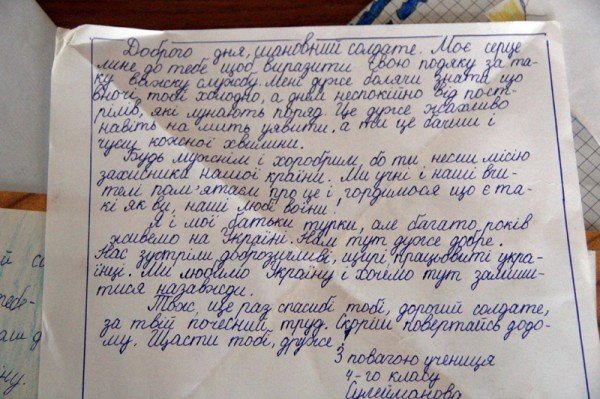 Доброго дня, шановний солдате. Моє серце
лине до тебе щоб виразити свою подяку за та-
ку важку службу. Мені дуже боляче знати що
вночі тобі холодно, а днем неспокійно від пост-
рілів, які лунають поряд. Це дуже жахливо
навіть на мить уявити, а ти це бачиш і
чуєш кожної хвилини.
Будь мужнім і хоробрим, бо ти несеш місію
захисника нашої країни. Ми учні і наші вчи-
телі пам'ятаєм про це і гордимося що є та-
кі як ви, наші любі воїни!
Я і мої батьки турки, але багато років
живемо на Україні. Нам тут дуже добре.
Нас зустріли доброзичливі, щирі працьовиті укра-
їнці. Ми любимо Україну і хочемо тут залиши-
тися назавжди.
Тож, ще раз спасибі тобі, дорогий солдате,
за твій почесний труд. Скоріш повертайсь додо-
му. Щасти тобі, друже!
З повагою учениця
4-го класу
Сулейманова